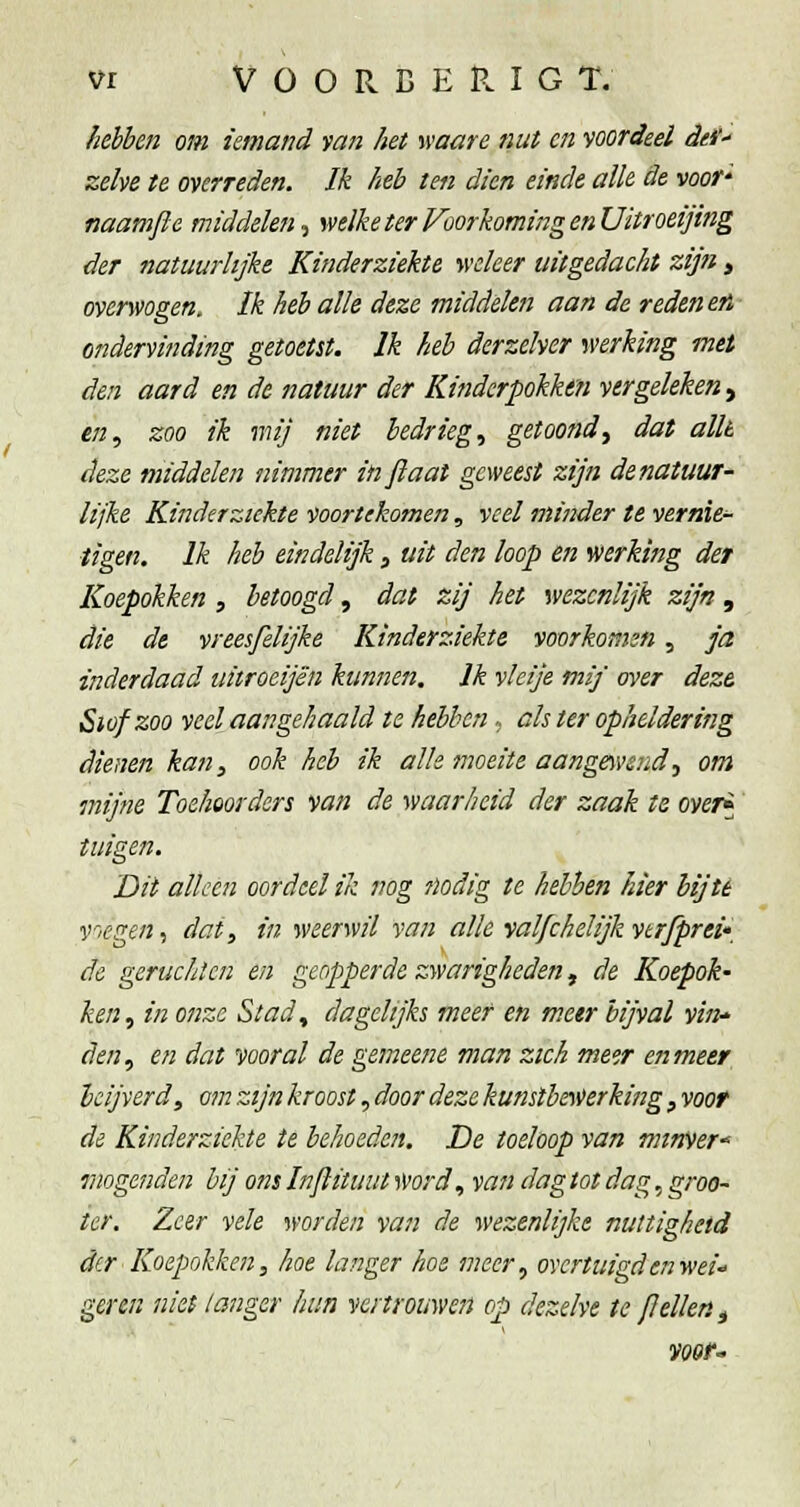 VI VOORBERIGT.
hebben om iemand van het waare nut en voordeel der-
zelve te overreden. Ik heb ten dien einde alle de voor-
naamſte middelen, welke ter Voorkoming en Uitroeijing
der natuurlijke Kinderziekte weleer uitgedacht zijn,
overwogen. Ik heb alle deze middelen aan de reden en
ondervinding getoetst. Ik heb derzelver werking met
den aard en de natuur der Kinderpokken vergeleken,
en, zoo ik mij niet bedrieg, getoond, dat alle
deze middelen nimmer in ſtaat geweest zijn de natuur-
lijke Kinderziekte voortekomen, veel minder te vernie-
tigen. Ik heb eindelijk, uit den loop en werking der
Koepokken, betoogd, dat zij het wezenlijk zijn,
die de vreesſelijke Kinderziekte voorkomen, ja
inderdaad uitroeijën kunnen. Ik vleije mij over deze
Stof zoo veel aangehaald te hebben, als ter opheldering
dienen kan, ook heb ik alle moeite aangewend, om
mijne Toehoorders van de waarheid der zaak te over-
tuigen.
Dit alleen oordeel ik nog nodig te hebben hier bij te
voegen, dat, in weerwil van alle valſchelijk verſprei-
de geruchten en geopperde zwarigheden, de Koepok-
ken, in onze Stad, dagelijks meer en meer bijval vin-
den, en dat vooral de gemeene man zich meer en meer
beijverd, om zijn kroost, door deze kunstbewerking, voor
de Kinderziekte te behoeden. De toeloop van minver-
mogenden bij ons Inſtituut word, van dag tot dag, groo-
ter. Zeer vele worden van de wezenlijke nuttigheid
der Koepokken, hoe langer hoe meer, overtuigd en wei-
geren niet langer hun vertrouwen op dezelve te ſtellen,
voor-